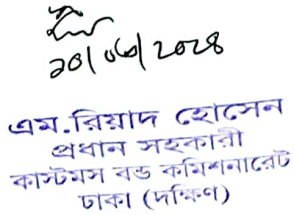 ২০/০৬/২০২৪
এম.রিয়াদ হোসেন
প্রধান সহকারী
কাস্টমস বন্ড কমিশনারেট
ঢাকা (দক্ষিণ)